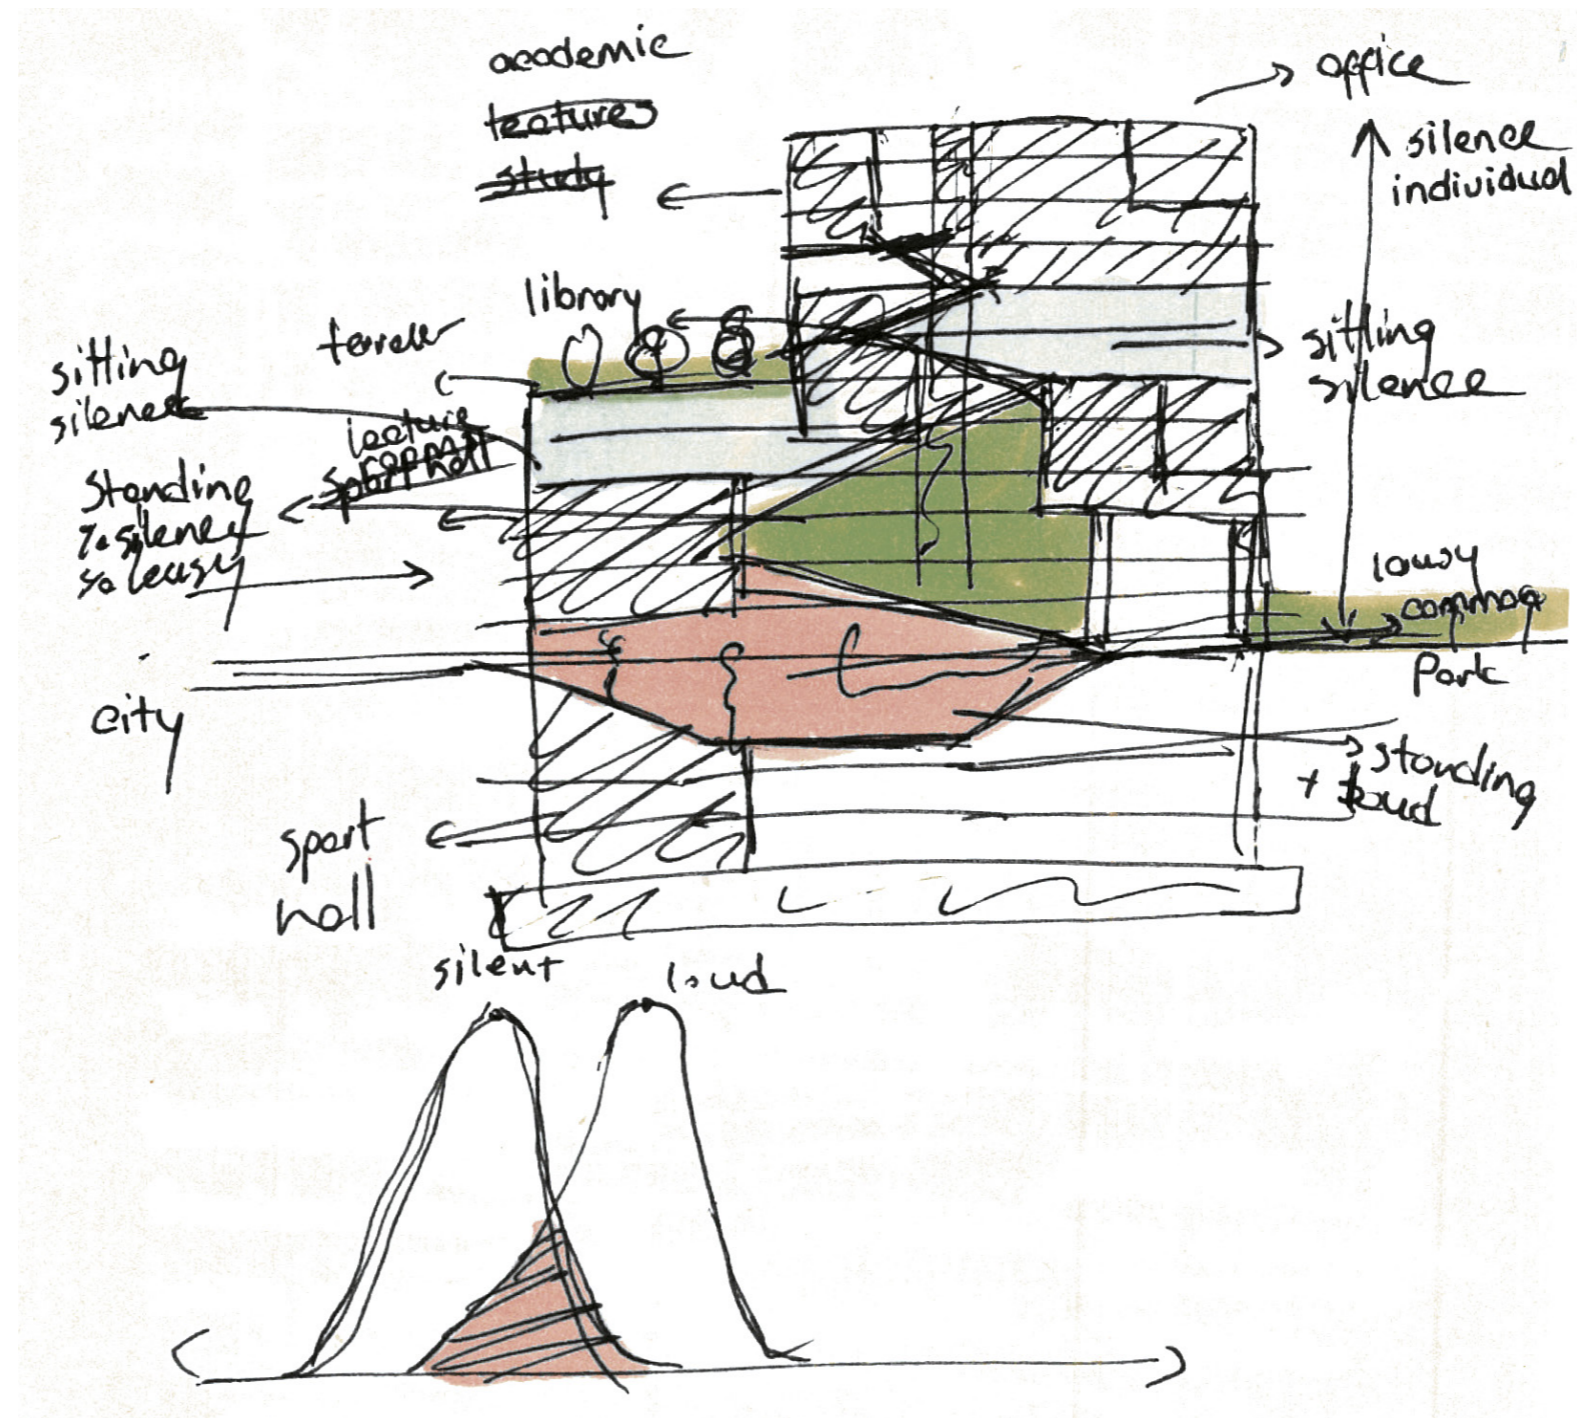 academic
study
office
silence
individual
library
sitting
silence
sitting
silence
lecture
sport hall
standing
common
park
city
standing
+ loud
sport
hall
silent
loud